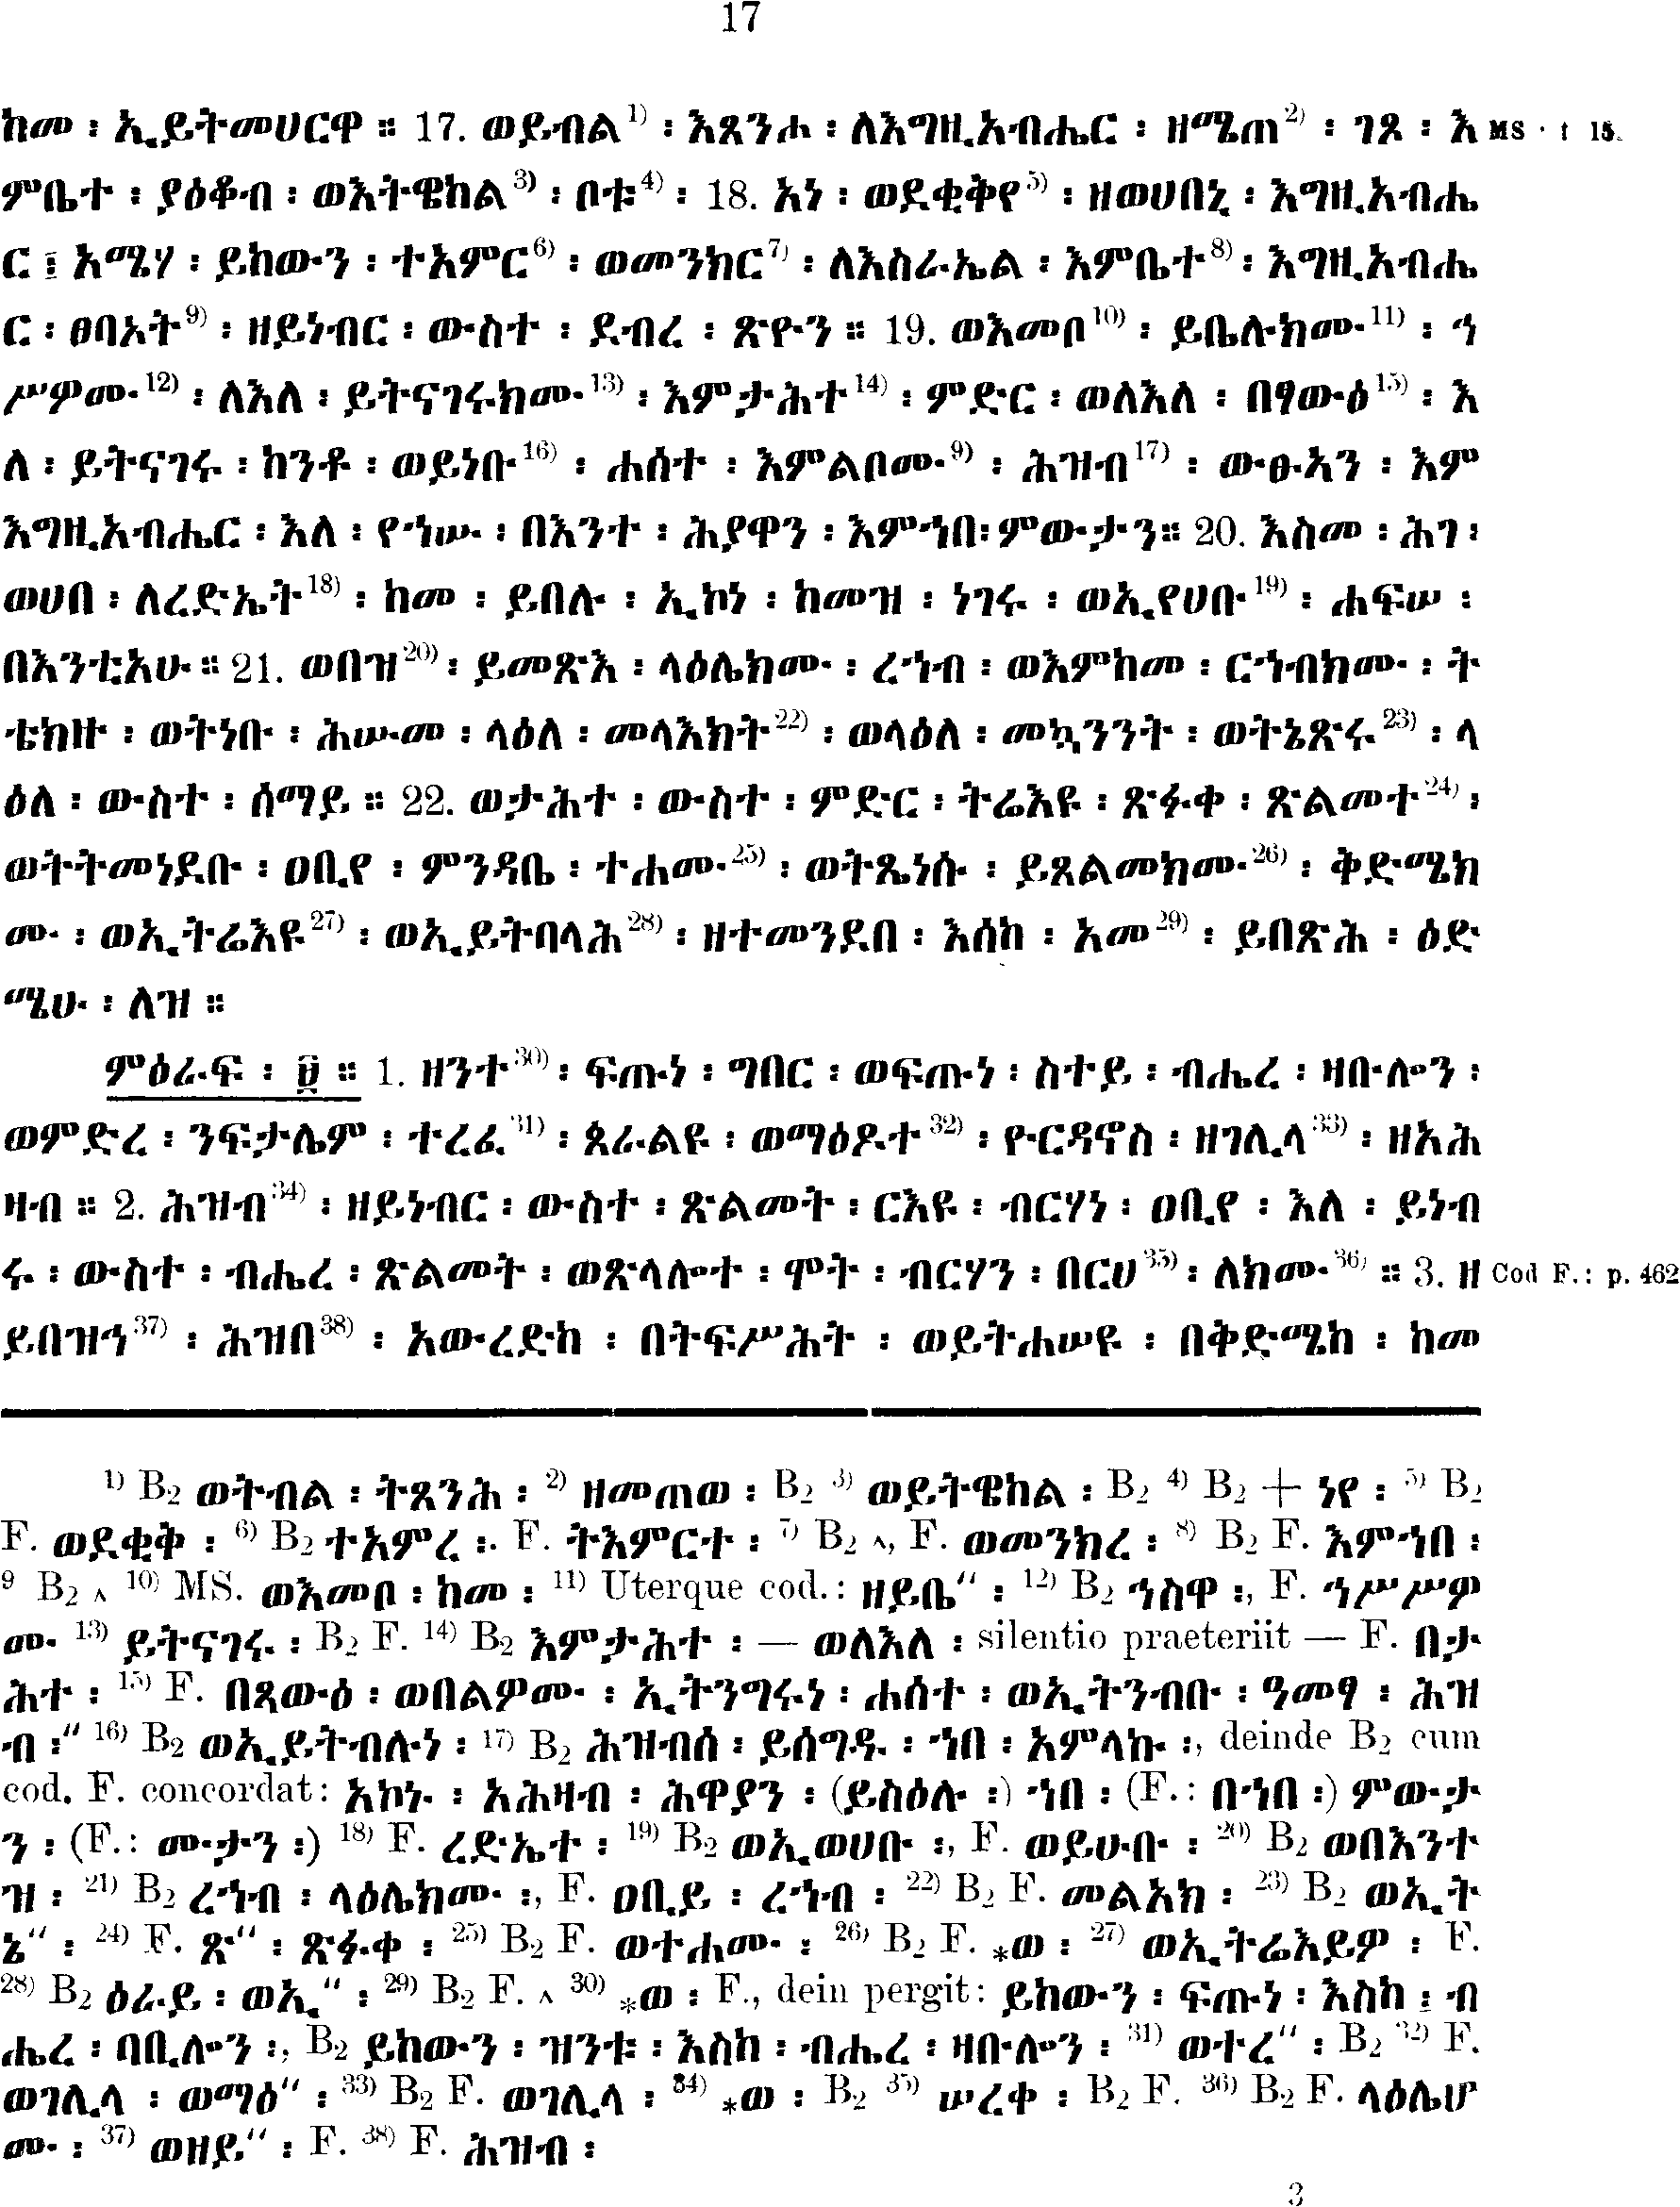 17
ከመ ፡ ኢይትመሀርዋ ። 17. ወይብል¹⁾ ፡ እጸንሖ ፡ ለእግዚአብሔር ፡ ዘሜጠ²⁾ ፡ ገጾ ፡ እ MS · f 15.
ምቤተ ፡ ያዕቆብ ፡ ወእትዌከል³⁾ ፡ ቦቱ⁴⁾ ፡ 18. አነ ፡ ወደቂቅየ⁵⁾ ፡ ዘወሀበኒ ፡ እግዚአብሔ
ር ፤ አሜሃ ፡ ይከውን ፡ ተአምር⁶⁾ ፡ ወመንክር⁷⁾ ፡ ለእስራኤል ፡ እምቤተ⁸⁾ ፡ እግዚአብሔ
ር ፡ ፀባኦት⁹⁾ ፡ ዘይነብር ፡ ውስተ ፡ ደብረ ፡ ጽዮን ። 19. ወእመቦ¹⁰⁾ ፡ ይቤሉክሙ¹¹⁾ ፡ ኅ
ሥዎሙ¹²⁾ ፡ ለእለ ፡ ይትናገሩክሙ¹³⁾ ፡ እምታሕተ¹⁴⁾ ፡ ምድር ፡ ወለእለ ፡ በፃውዕ¹⁵⁾ ፡ እ
ለ ፡ ይትናገሩ ፡ ከንቶ ፡ ወይነቡ¹⁶⁾ ፡ ሐሰተ ፡ እምልቦሙ⁹⁾ ፡ ሕዝብ¹⁷⁾ ፡ ውፁኣን ፡ እም
እግዚአብሔር ፡ እለ ፡ የኀሡ ፡ በእንተ ፡ ሕያዋን ፡ እምኀበ ፡ ምውታን ። 20. እስመ ፡ ሕገ ፡
ወሀበ ፡ ለረድኤት¹⁸⁾ ፡ ከመ ፡ ይበሉ ፡ ኢኮነ ፡ ከመዝ ፡ ነገሩ ፡ ወኢየሀቡ¹⁹⁾ ፡ ሐፍሠ ፡
በእንቲአሁ ። 21. ወበዝ²⁰⁾ ፡ ይመጽእ ፡ ላዕሌክሙ ፡ ረኀብ ፡ ወእምከመ ፡ ርኀብክሙ ፡ ት
ቴክዙ ፡ ወትነቡ ፡ ሕሡመ ፡ ላዕለ ፡ መላእክት²²⁾ ፡ ወላዕለ ፡ መኳንንት ፡ ወትኔጽሩ²³⁾ ፡ ላ
ዕለ ፡ ውስተ ፡ ሰማይ ። 22. ወታሕተ ፡ ውስተ ፡ ምድር ፡ ትሬእዩ ፡ ጽፉቀ ፡ ጽልመተ²⁴⁾ ፡
ወትትመነደቡ ፡ ዐቢየ ፡ ምንዳቤ ፡ ተሐሙ²⁵⁾ ፡ ወትጼነሱ ፡ ይጸልመክሙ²⁶⁾ ፡ ቅድሜክ
ሙ ፡ ወኢትሬእዩ²⁷⁾ ፡ ወኢይትባላሕ²⁸⁾ ፡ ዘተመንደበ ፡ እሰከ ፡ አመ²⁹⁾ ፡ ይበጽሕ ፡ ዕድ
ሜሁ ፡ ለዝ ።
ምዕራፍ ፡ ፱ ። 1. ዘንተ³⁰⁾ ፡ ፍጡነ ፡ ግበር ፡ ወፍጡነ ፡ ስተይ ፡ ብሔረ ፡ ዛቡሎን ፡
ወምድረ ፡ ንፍታሌም ፡ ተረፈ³¹⁾ ፡ ጰራልዩ ፡ ወማዕዶተ³²⁾ ፡ ዮርዳኖስ ፡ ዘገሊላ³³⁾ ፡ ዘአሕ
ዛብ ። 2. ሕዝብ³⁴⁾ ፡ ዘይነብር ፡ ውስተ ፡ ጽልመት ፡ ርእዩ ፡ ብርሃነ ፡ ዐቢየ ፡ እለ ፡ ይነብ
ሩ ፡ ውስተ ፡ ብሔረ ፡ ጽልመት ፡ ወጽላሎተ ፡ ሞት ፡ ብርሃን ፡ በርሀ³⁵⁾ ፡ ለክሙ³⁶⁾ ። 3. ዘ Cod F.: p. 462
ይበዝኅ³⁷⁾ ፡ ሕዝበ³⁸⁾ ፡ አውረድከ ፡ በትፍሥሕት ፡ ወይትሐሠዩ ፡ በቅድሜከ ፡ ከመ
¹⁾ B₂ ወትብል ፡ ትጸንሕ ፡ ²⁾ ዘመጠወ ፡ B₂ ³⁾ ወይትዌከል ፡ B₂ ⁴⁾ B₂ + ነየ ፡ ⁵⁾ B₂
F. ወደቂቅ ፡ ⁶⁾ B₂ ተአምረ ፡. F. ትእምርተ ፡ ⁷⁾ B₂ ʌ, F. ወመንክረ ፡ ⁸⁾ B₂ F. እምኀበ ፡
⁹ B₂ ʌ ¹⁰⁾ MS. ወእመቦ ፡ ከመ ፡ ¹¹⁾ Uterque cod.: ዘይቤ" ፡ ¹²⁾ B₂ ኅስዋ ፡, F. ኅሥሥዎ
ሙ ¹³⁾ ይትናገሩ ፡ B₂ F. ¹⁴⁾ B₂ እምታሕተ ፡ — ወለእለ ፡ silentio praeteriit — F. በታ
ሕተ ፡ ¹⁵⁾ F. በጻውዕ ፡ ወበልዎሙ ፡ ኢትንግሩነ ፡ ሐሰተ ፡ ወኢትንብቡ ፡ ዓመፃ ፡ ሕዝ
ብ ፡" ¹⁶⁾ B₂ ወኢይትብሉነ ፡ ¹⁷⁾ B₂ ሕዝብሰ ፡ ይሰግዱ ፡ ኀበ ፡ አምላኩ ፡, deinde B₂ cum
cod. F. concordat: አኮኑ ፡ አሕዛብ ፡ ሕዋያን ፡ (ይስዕሉ ፡) ኀበ ፡ (F.: በኀበ ፡) ምውታ
ን ፡ (F.: ሙታን ፡) ¹⁸⁾ F. ረድኤተ ፡ ¹⁹⁾ B₂ ወኢወሀቡ ፡, F. ወይሁቡ ፡ ²⁰⁾ B₂ ወበእንተ
ዝ ፡ ²¹⁾ B₂ ረኀብ ፡ ላዕሌክሙ ፡, F. ዐቢይ ፡ ረኀብ ፡ ²²⁾ B₂ F. መልአክ ፡ ²³⁾ B₂ ወኢት
ኔ" ፡ ²⁴⁾ F. ጽ" ፡ ጽፉቀ ፡ ²⁵⁾ B₂ F. ወተሐሙ ፡ ²⁶⁾ B₂ F. *ወ ፡ ²⁷⁾ ወኢትሬእይዎ ፡ F.
²⁸⁾ B₂ ዕራይ ፡ ወኢ" ፡ ²⁹⁾ B₂ F. ʌ ³⁰⁾ *ወ ፡ F., dein pergit: ይከውን ፡ ፍጡነ ፡ እስከ ፡ ብ
ሔረ ፡ ባቢሎን ፡, B₂ ይከውን ፡ ዝንቱ ፡ እስከ ፡ ብሔረ ፡ ዛቡሎን ፡ ³¹⁾ ወተረ" ፡ B₂ ³²⁾ F.
ወገሊላ ፡ ወማዕ" ፡ ³³⁾ B₂ F. ወገሊላ ፡ ³⁴⁾ *ወ ፡ B₂ ³⁵⁾ ሠረቀ ፡ B₂ F. ³⁶⁾ B₂ F. ላዕሌሆ
ሙ ፡ ³⁷⁾ ወዘይ" ፡ F. ³⁸⁾ F. ሕዝብ ፡
3